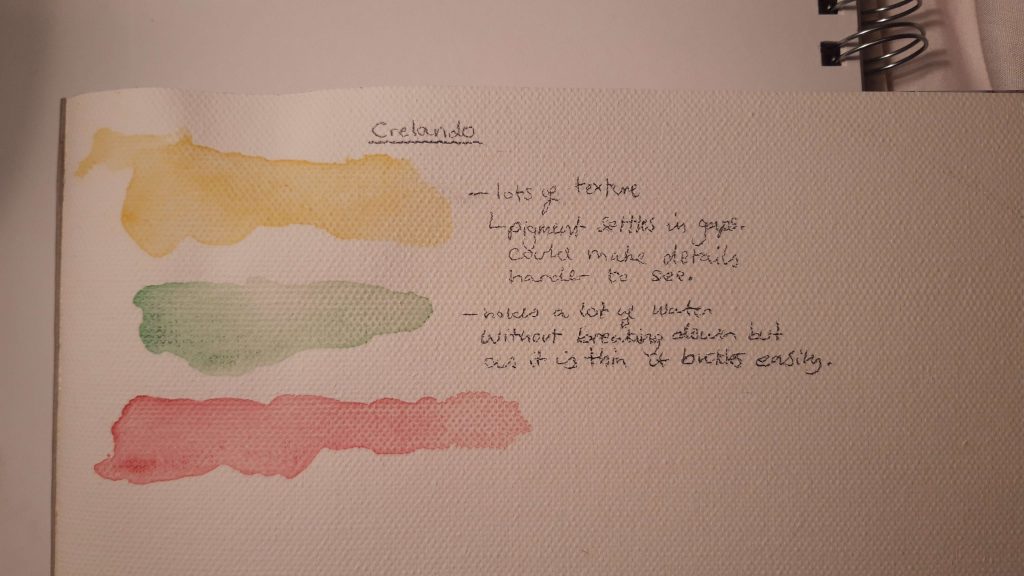 Crelando
- lots of texture
└ pigment settles in gaps.
could make details
harder to see.
- holds a lot of water
without breaking down but
as it is thin it buckles easily.